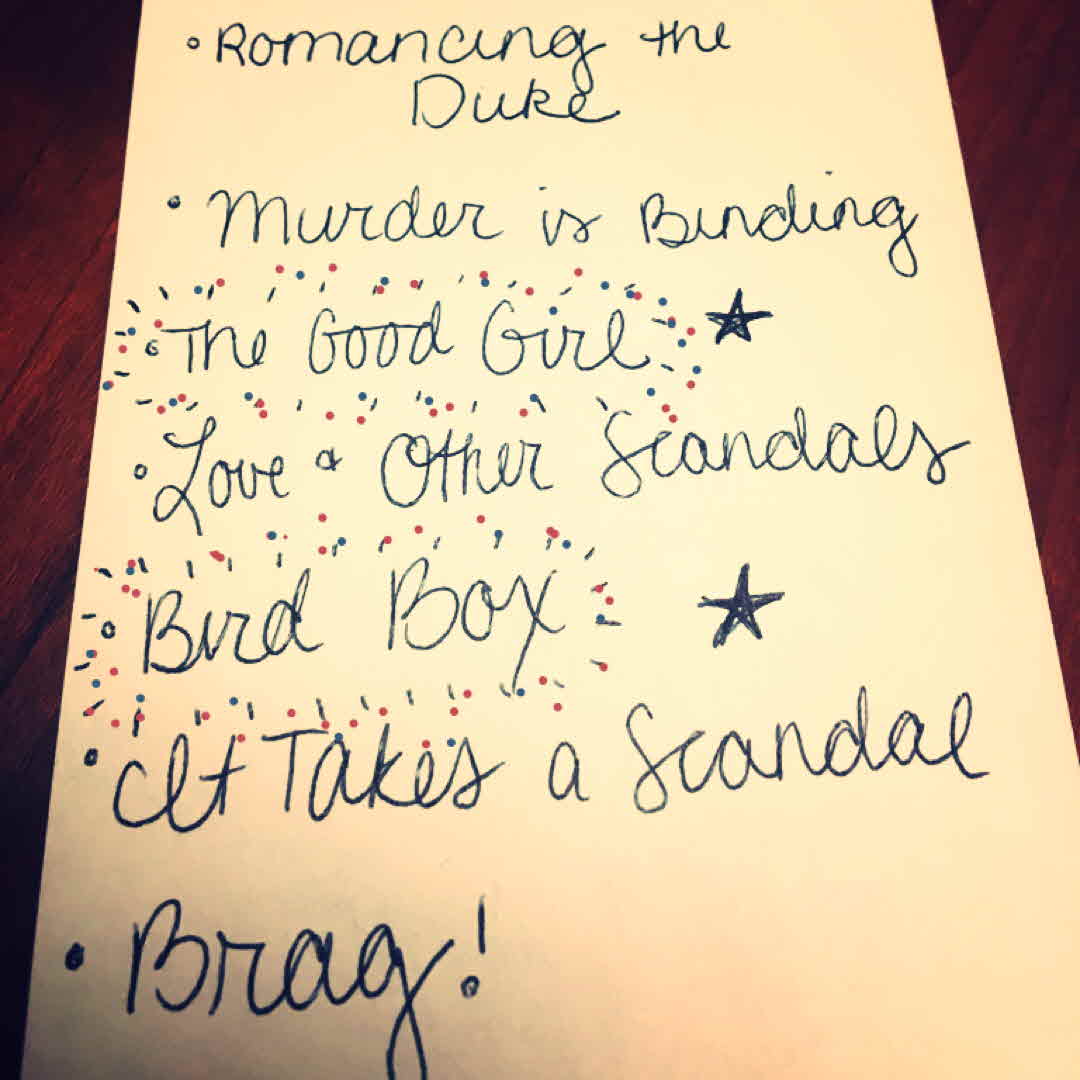 • Romancing the
Duke
• Murder is Binding
• The Good Girl ★
• Love & Other Scandals
• Bird Box ★
• It Takes a Scandal
• Brag!